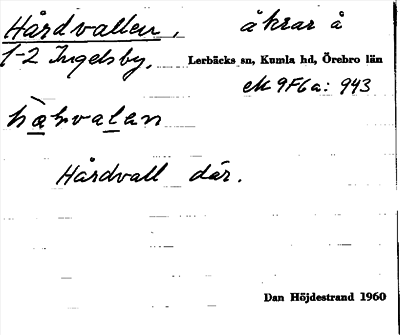 Hårdvallen, åkrar å
1-2 Ingelsby, Lerbäcks sn, Kumla hd, Örebro län
ek 9F6a: 943
hàrvalan
Hårdvall där.
Dan Höjdestrand 1960